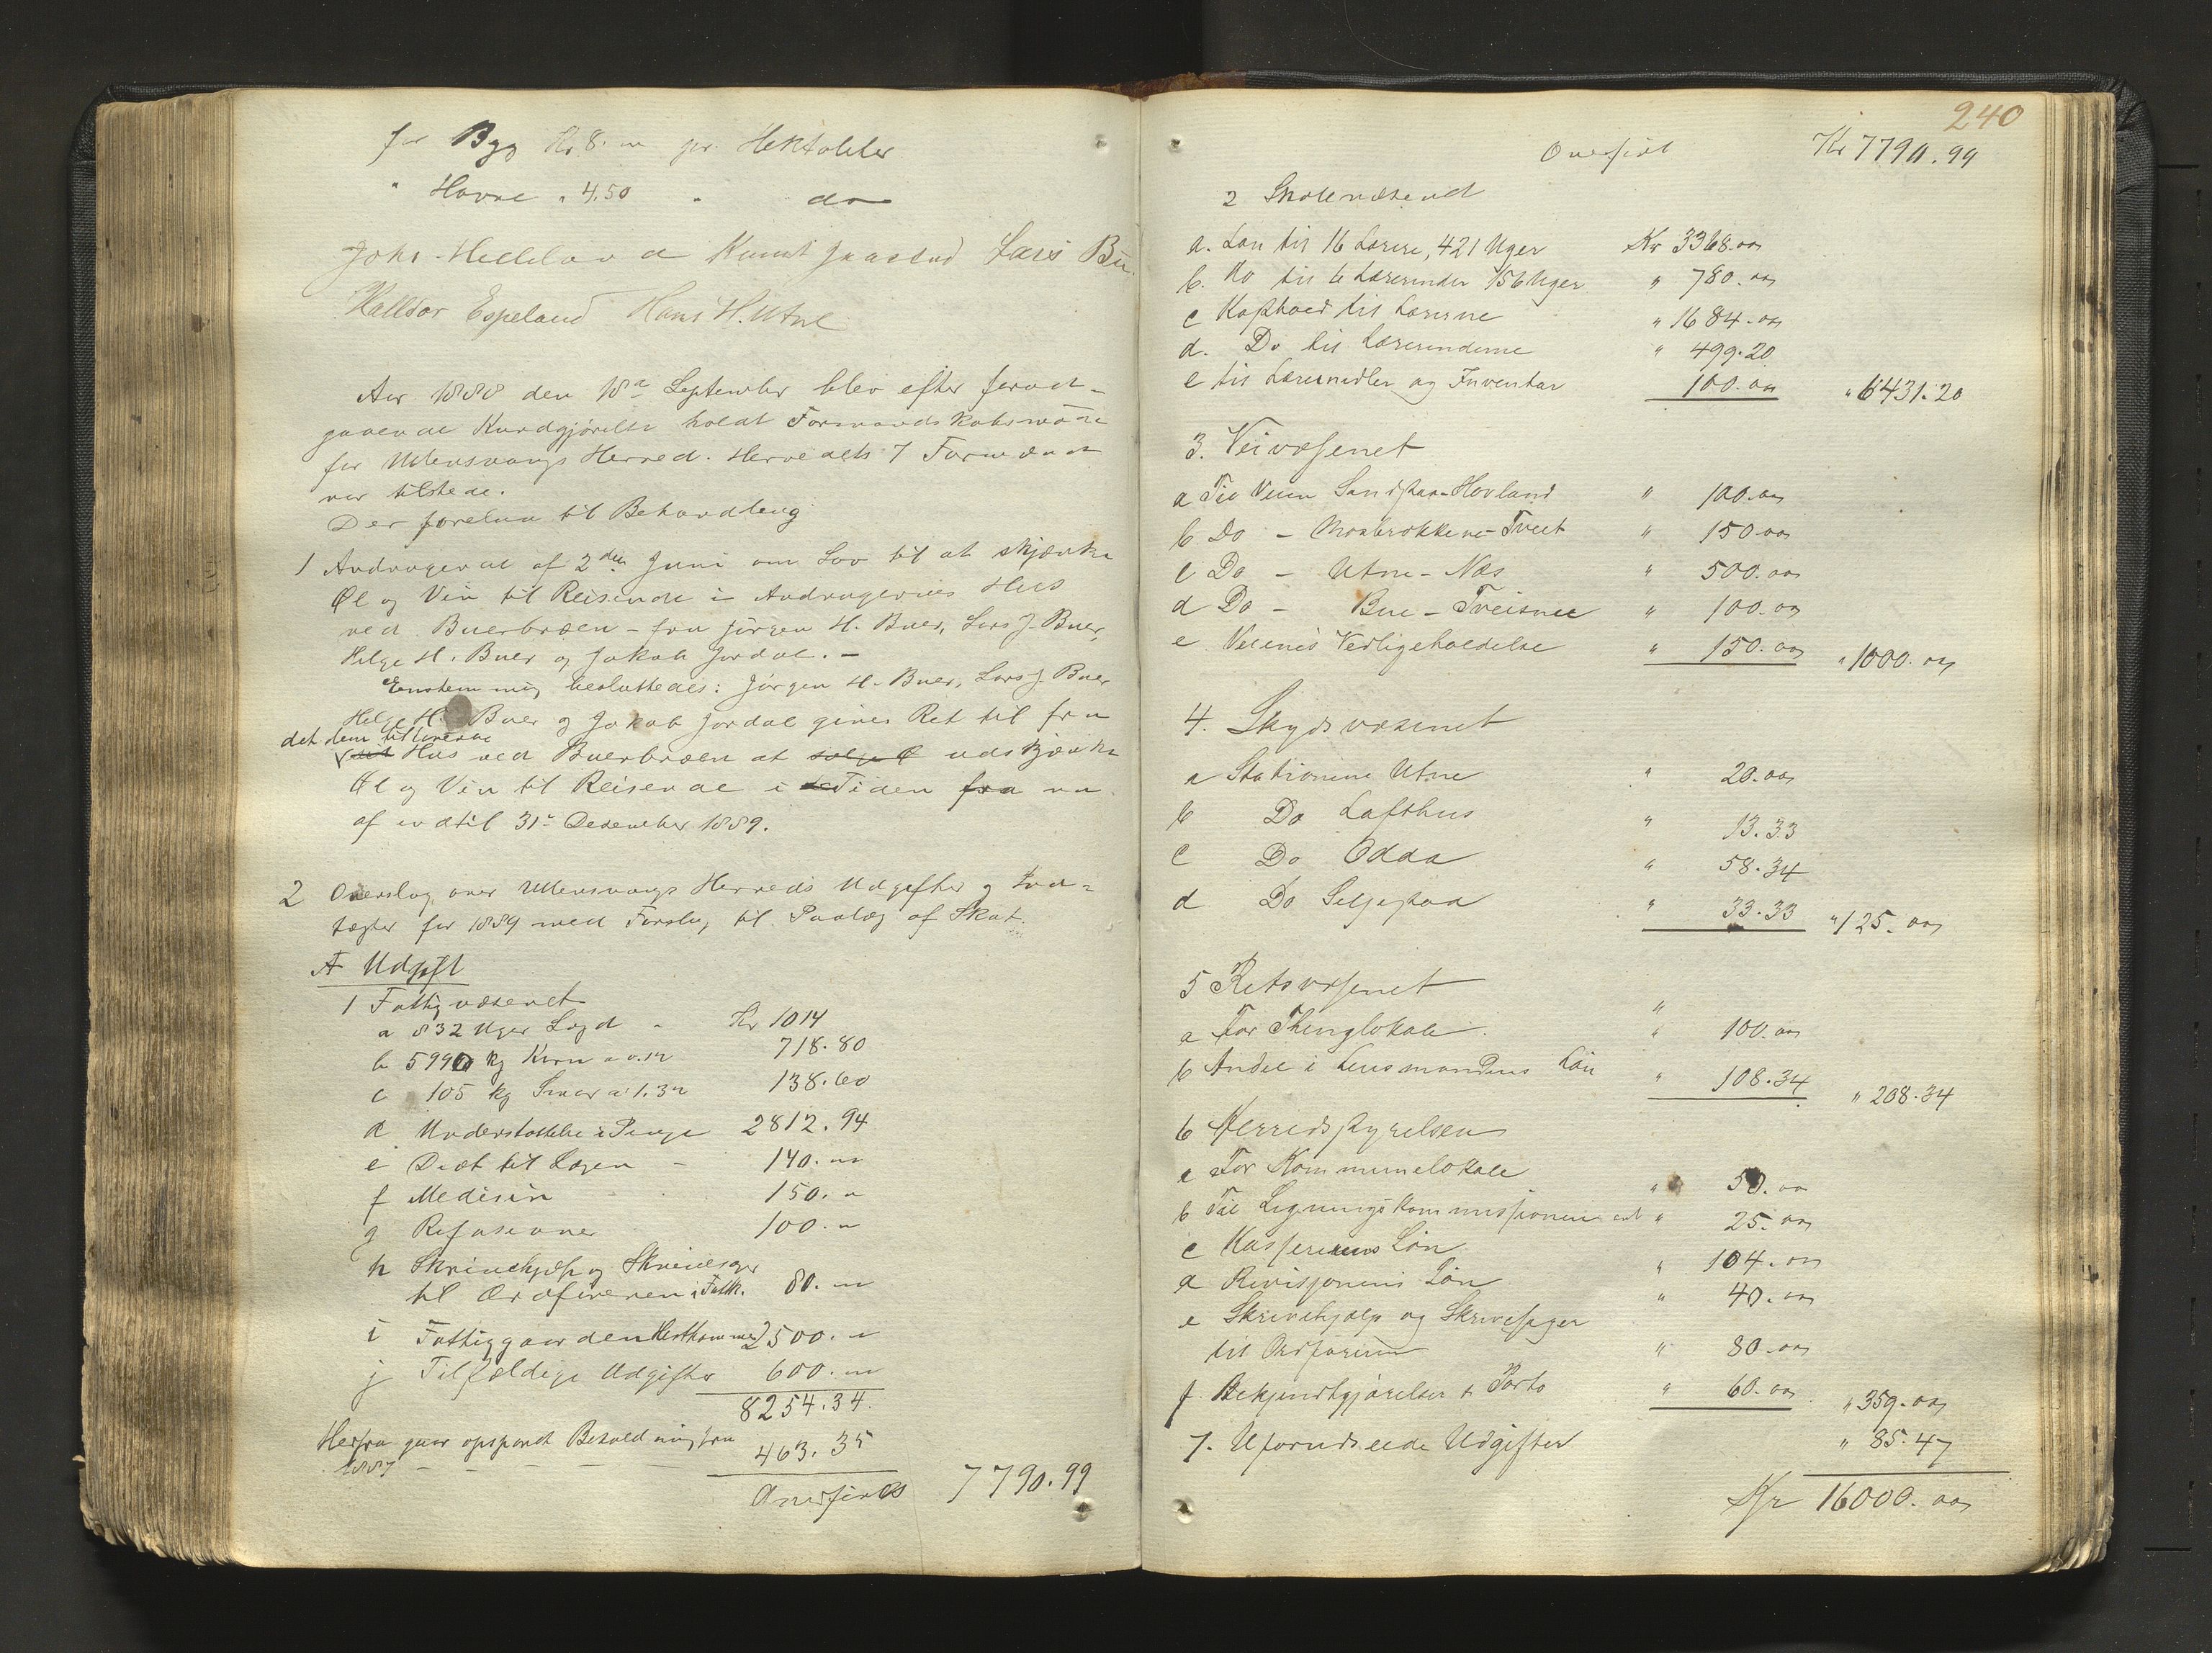 for Byg Kr 8.00 pr. Hektoliter
" Havre " 4.50 " do
Johs. Helleland Knut Jaastad Lars Bu
Halldor Espeland Hans H. Utne
Aar 1888 den 18de September blev efter forud-
gaaende Kundgjørelse holdt Formandskabsmøde
for Ullensvangs Herred. Herredets 7 Formænd
var tilstede.
Der forelaa til Behandling
1 Andragende af 2den Juni om Lov til at skjænke
Øl og Vin til Reisende i Andragernes Hus
ved Buerbræen - fra Jørgen H. Buer, Lars J. Buer,
Helge H. Buer og Jakob Jordal. -
Enstemmig besluttedes: Jørgen H. Buer, Lars J. Buer
Helge H. Buer og Jakob Jordal gives Ret til fra
det dem tilhørende
Hus ved Buerbræen at sælge Ø udskjænke
Øl og Vin til Reisende i Tiden fra nu
af indtil 31te Desember 1889.
2 Overslag over Ullensvangs Herreds Udgifter og Ind-
tægter for 1889 med Forslag til Paalæg af Skat.
A Udgift
1 Fattigvæsenet
a 832 Uger Lægd - Kr 1014
b 5990 kg Korn a 0.12 718.80
c 105 kg Smør a 1.32 138.60
d Understøttelse i Penge 2812.94
e Diæt til Lægen - 140.00
f Medisin 150.00
g Refusioner 100.00
h Skrivehjælp og Skrivesager
til Ordføreren i Fattk. 80.00
i Fattiggaarden Hestkammer 2500.00
j Tilfældige Udgifter 600.00
8254.34.
Herfra gaar opspart Beholdning fra
1887 - - - - - 463.35
Overføres 7790.99
240
Overført Kr 7790.99
2 Skolevæsenet
a. Løn til 16 Lærere, 421 Uger Kr 3368.00
b. Do til 6 Lærerinder 156 Uger " 780.00
c Kosthold til Lærerne " 1684.00
d. Do til Lærerinderne " 499.20
e til Læremidler og Inventar 100.00 " 6431.20
3. Veivæsenet
a Til Veien Sandstaa-Hovland " 100.00
b Do - Maabrækkene-Tveit " 150.00
c Do - Utne-Næs " 500.00
d Do - Bue-Freisnes " 100.00
e Veienes Vedligeholdelse " 150.00 " 1000.00
4. Skydsvæsenet
a Stationene Utne " 20.00
b Do Lofthus " 13.33
c Do Odda " 58.34
d Do Seljestad " 33.33 " 125.00
5 Retsvæsenet "
a For Thinglokale " 100.00
b Andel i Lensmandens Løn " 108.34 " 208.34
6 Herredsstyrelsen
a For Kommunelokale " 50.00
b Til Ligningskommissionen " 25.00
c Kassererens Løn " 104.00
d Revisionens Løn " 40.00
e Skrivehjælp og Skrivesager
til Ordføreren " 80.00
f. Bekjendtgjørelser & Porto " 60.00 " 359.00
7. Uforudseede Udgifter " 85.47
Kr 16000.00